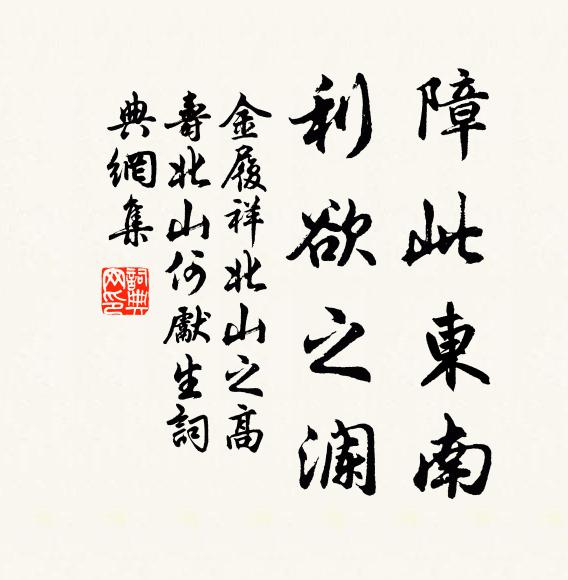 障此東南
利欲之澜
金履祥北山之高
壽北山何獻生詞
典網集
詞典
网印